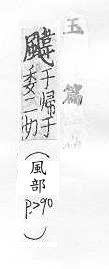 玉篇
颹于歸于委二切(風部P.290)